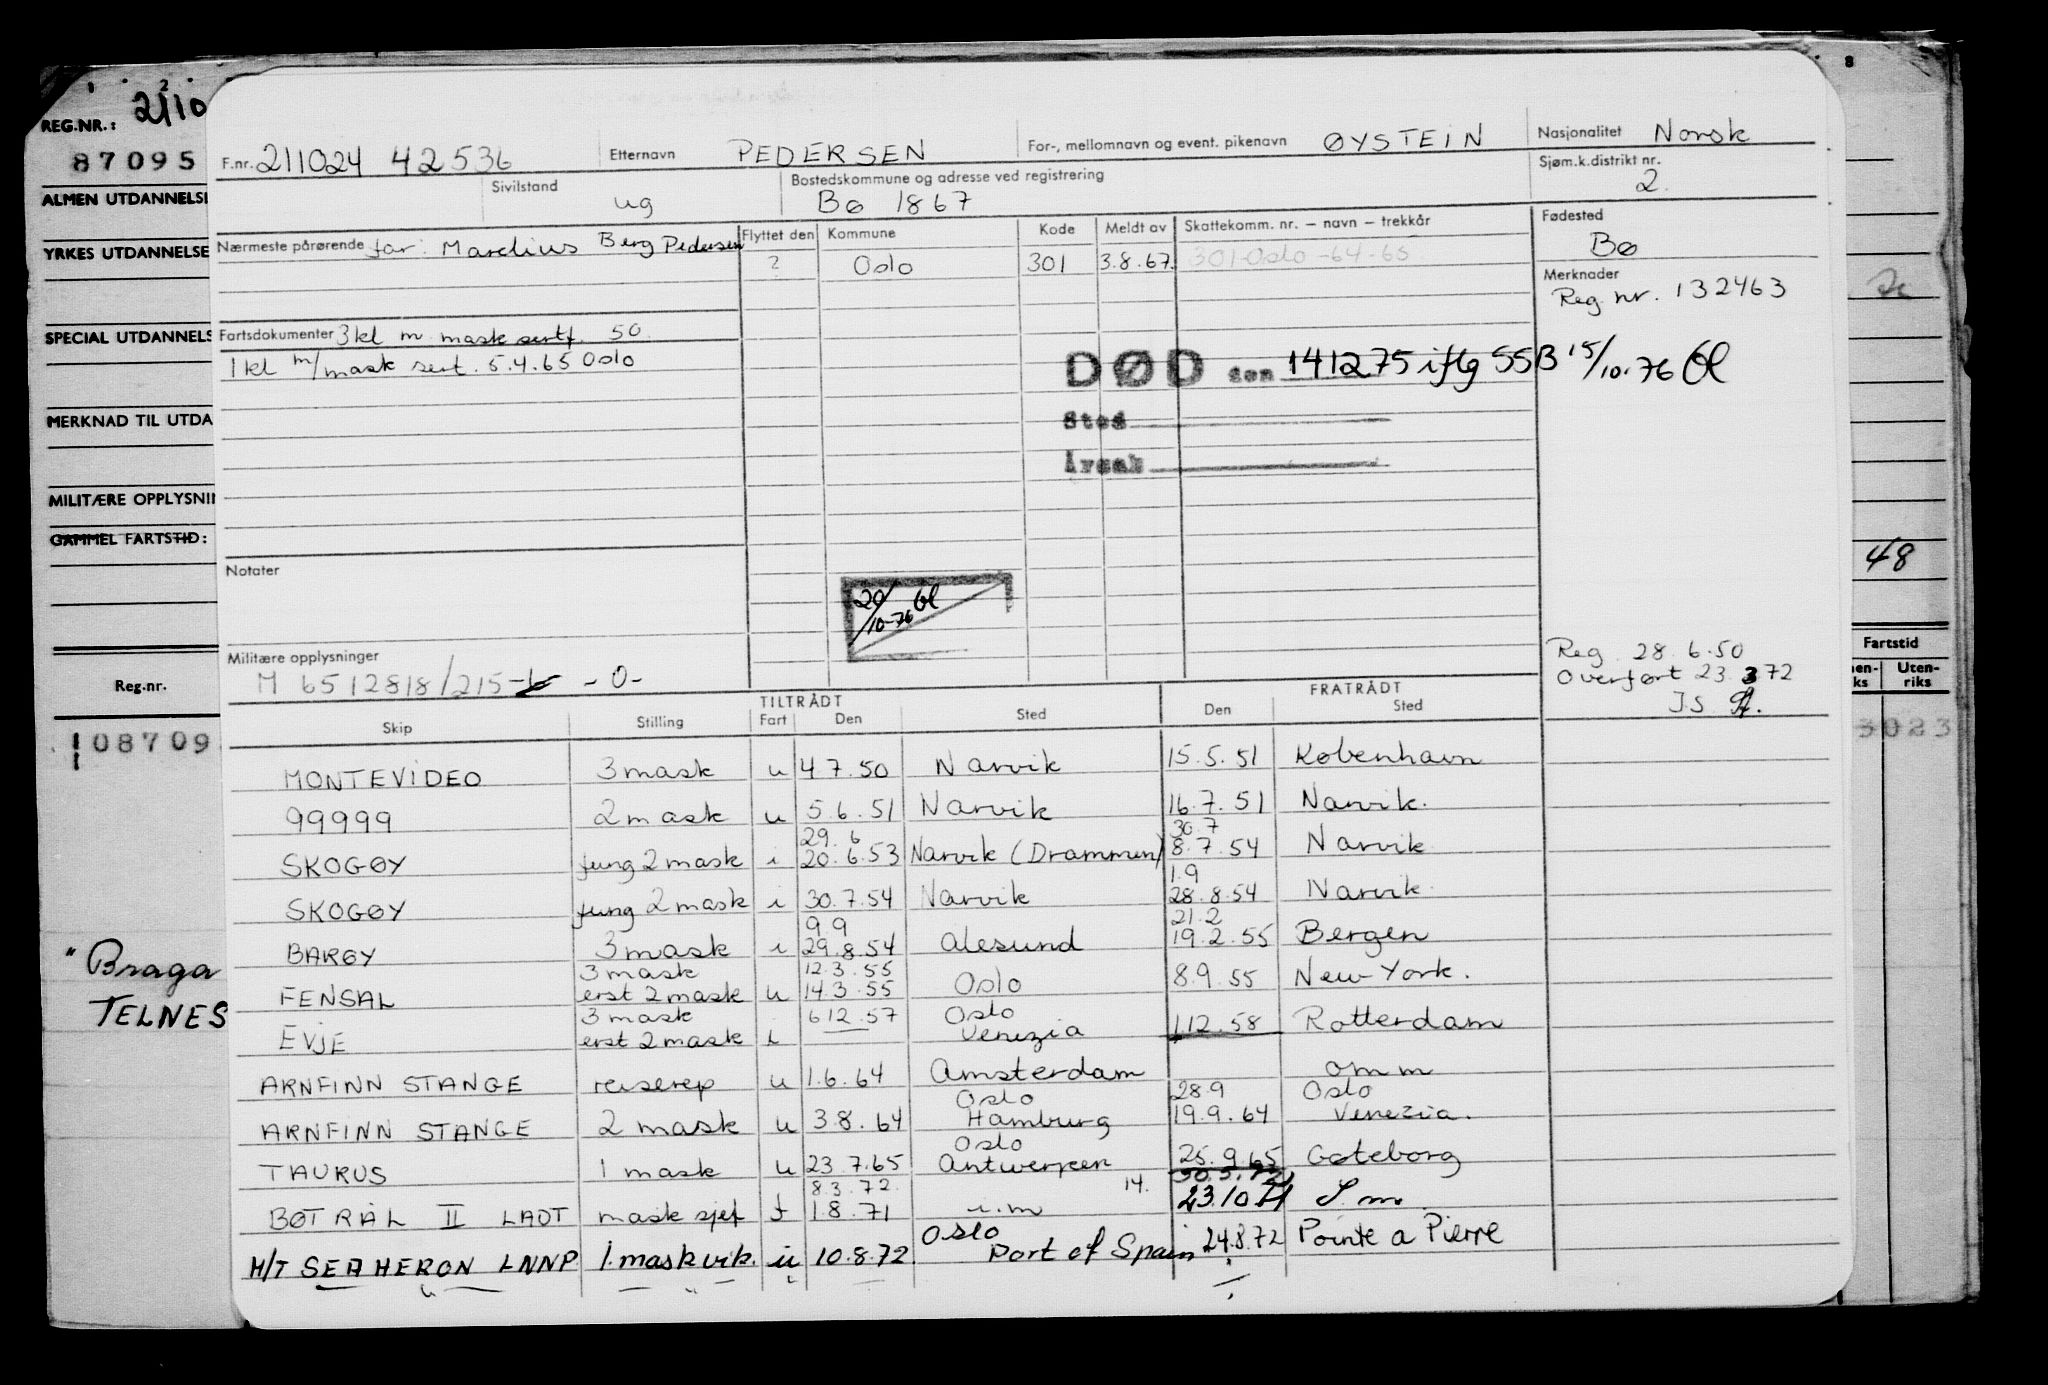 REG.NR.: 2/10
87095
F.nr. 211024 42536 Etternavn PEDERSEN For-, mellomnavn og event. pikenavn ØYSTEIN Nasjonalitet Norsk
ALMEN UTDANNELSE
Sivilstand ug Bostedskommune og adresse ved registrering Bø 1867 Sjøm.k.distrikt nr. 2.
YRKES UTDANNELSE
Nærmeste pårørende far: Marelius Berg Pedersen Flyttet den Kommune Kode Meldt av Skattekomm. nr. – navn – trekkår Fødested Bø
? Oslo 301 3.8.67. 301-Oslo-64-65
Merknader
Reg. nr. 132463
SPECIAL UTDANNELS
Fartsdokumenter 3kl m mask sertf. 50.
1 kl m/mask sert. 5.4.65 Oslo
DØD den 141275 iflg SSB 15/10.76 Gl
Sted
Årsak
MERKNAD TIL UTDA
MILITÆRE OPPLYSNIN
GAMMEL FARTSTID:
48
Notater
20/10-76 Gl
Militære opplysninger
M 6512818/215-b -0-
Reg. 28.6.50
Overført 23.3.72
J.S.
Fartstid
Uten-riks
Reg.nr.
TILTRÅDT FRATRÅDT
Skip Stilling Fart Den Sted Den Sted
108709
3023
MONTEVIDEO 3 mask u 4.7.50 Narvik 15.5.51 København
99999 2 mask u 5.6.51 Narvik 16.7.51 Narvik.
29.6 30.7
SKOGØY fung 2 mask i 20.6.53 Narvik (Drammen) 8.7.54 Narvik
1.9
SKOGØY fung 2 mask i 30.7.54 Narvik 28.8.54 Narvik.
9 9 21.2
BARØY 3 mask i 29.8.54 Ålesund 19.2.55 Bergen
3 mask 12.3.55
FENSAL erst 2 mask u 14.3.55 Oslo 8.9.55 New York.
3 mask 6 12.57 Oslo
EVJE erst 2 mask i Venezia 1.12.58 Rotterdam
ARNFINN STANGE reiserep u 1.6.64 Amsterdam omm
Oslo 28.9 Oslo
ARNFINN STANGE 2 mask u 3.8.64 Hamburg 19.9.64 Venezia.
Oslo
TAURUS 1 mask u 23.7.65 Antwerpen 25.9.65 Gøteborg
8.3.72. 14. 30.3.72
BØTRÅL II LADT mask sjef f 1.8.71 i.m 23.10.71 S.m.
Oslo
M/T SEA HERON LNNP. 1. mask vik. u 10.8.72. Port of Spain 24.8.72 Pointe a Pierre
"Braga
TELNES